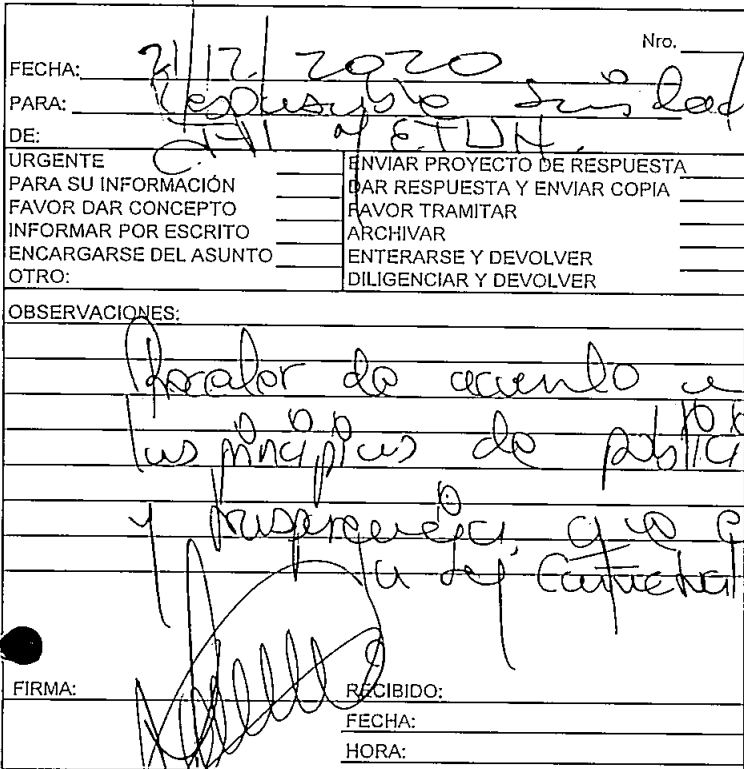 Nro.
FECHA: 21/12/2020
PARA:
DE: Y
URGENTE
PARA SU INFORMACIÓN
FAVOR DAR CONCEPTO
INFORMAR POR ESCRITO
ENCARGARSE DEL ASUNTO
OTRO:
ENVIAR PROYECTO DE RESPUESTA
DAR RESPUESTA Y ENVIAR COPIA
FAVOR TRAMITAR
ARCHIVAR
ENTERARSE Y DEVOLVER
DILIGENCIAR Y DEVOLVER
OBSERVACIONES:
de acuerdo
los principios de
y
a
FIRMA:
RECIBIDO:
FECHA:
HORA: